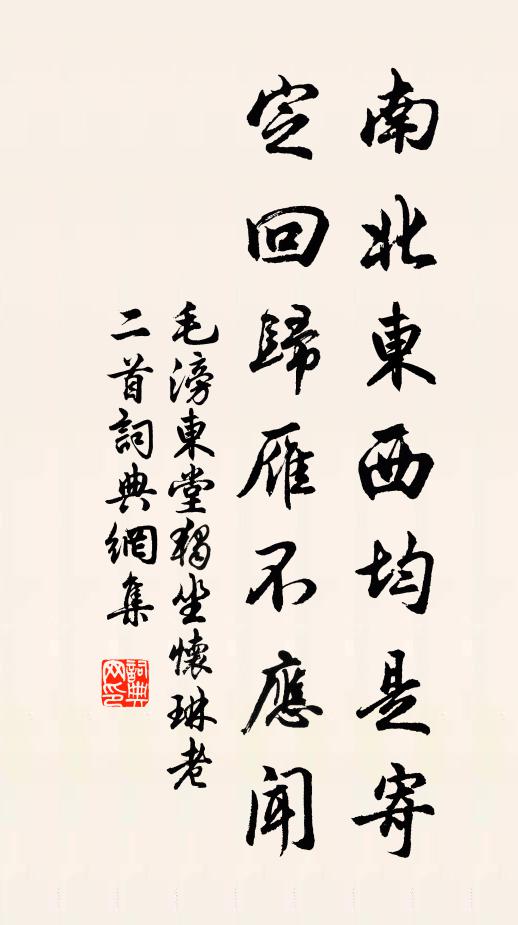 南北東西均是寄
定回歸雁不應聞
毛滂東堂獨坐懷琳老
二首詞典網集
詞典
网印